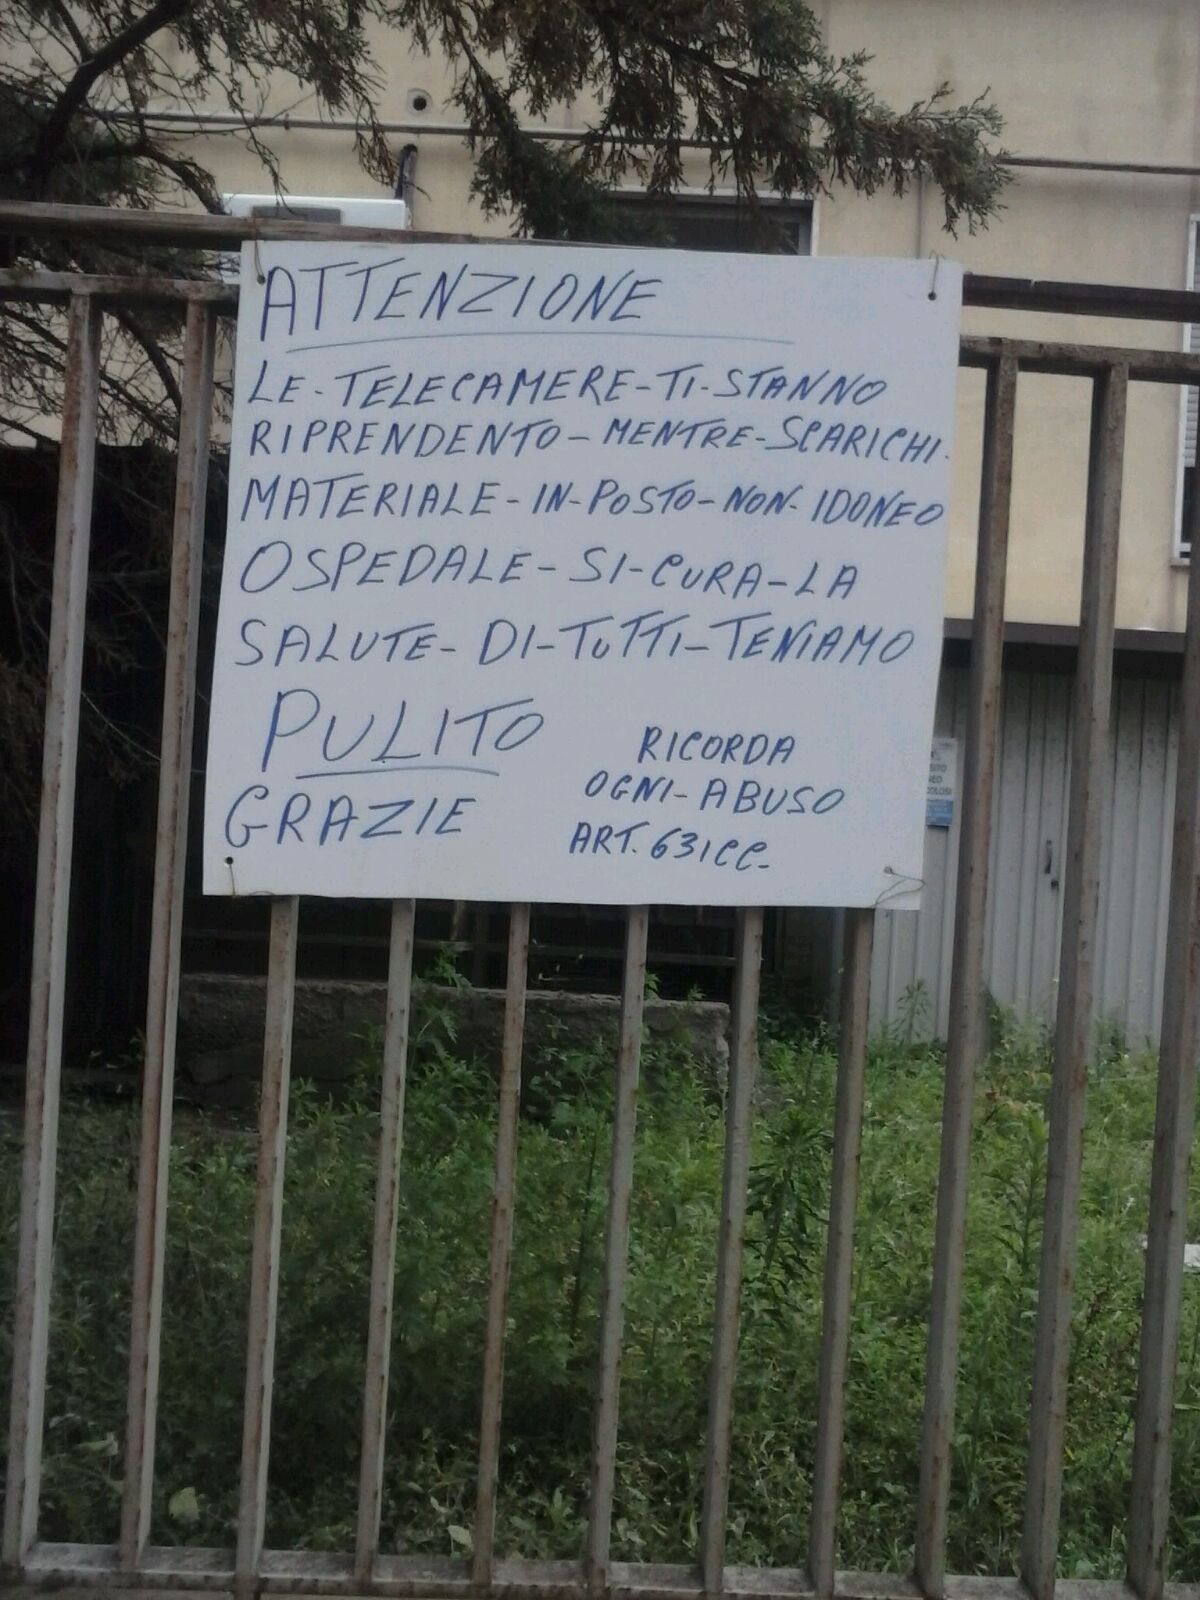 ATTENZIONE
LE-TELECAMERE-TI-STANNO
RIPRENDENTO-MENTRE-SCARICHI.
MATERIALE-IN-POSTO-NON-IDONEO
OSPEDALE-SI-CURA-LA
SALUTE-DI-TUTTI-TENIAMO
PULITO
GRAZIE
RICORDA
OGNI-ABUSO
ART. 631CC-